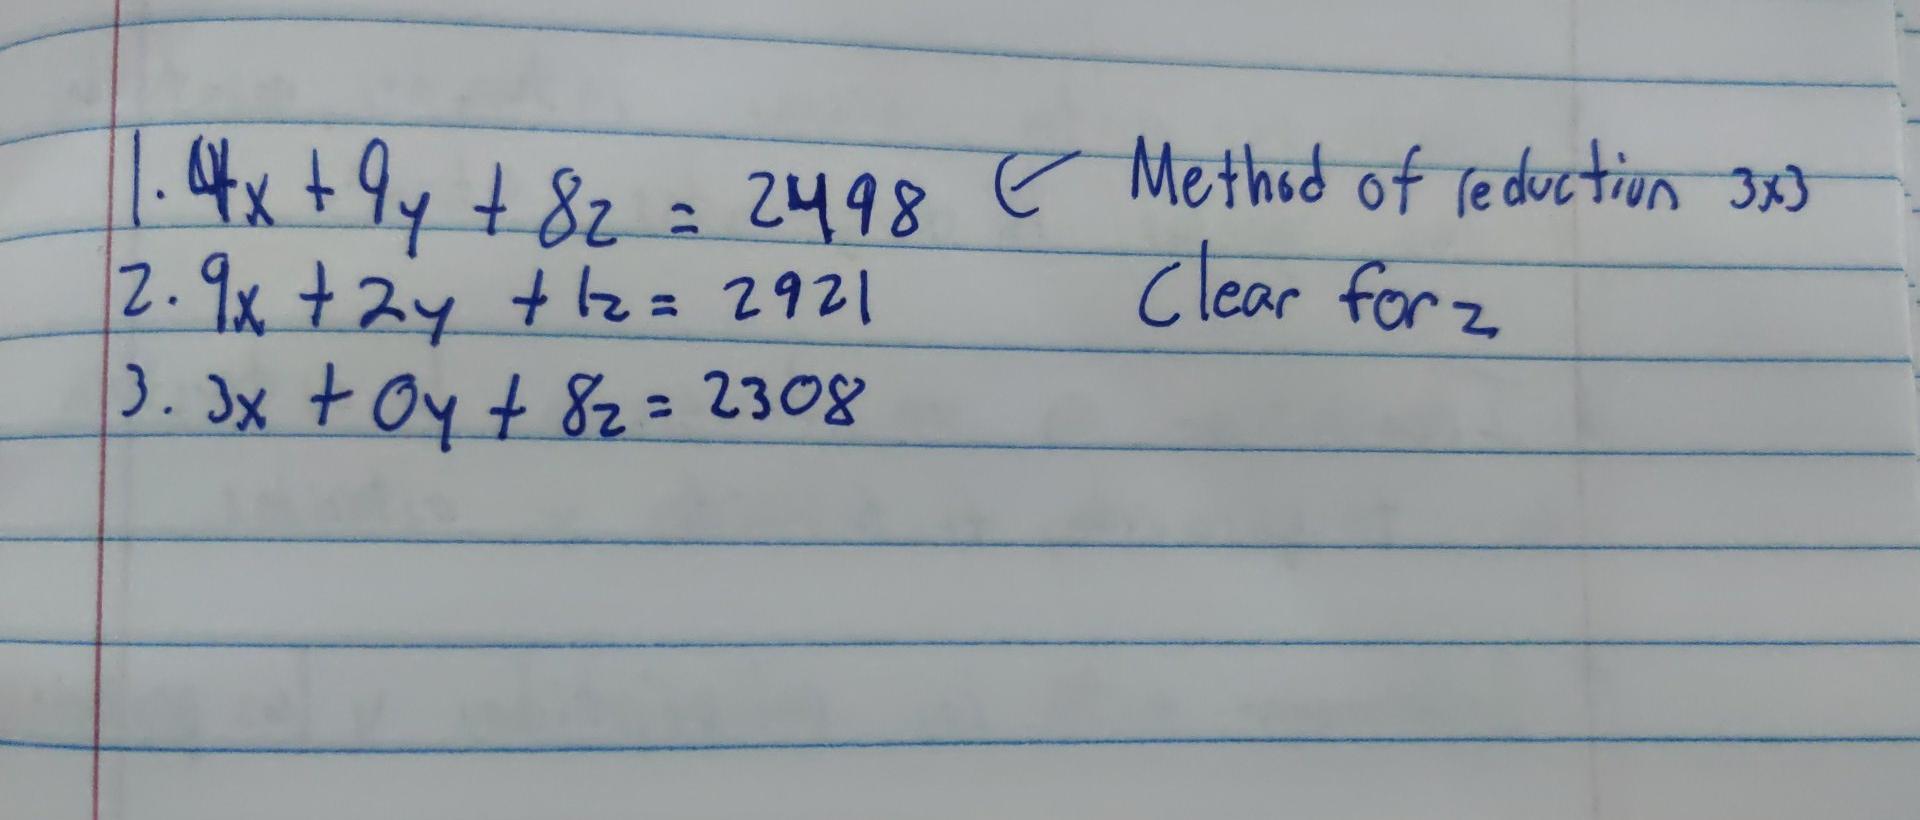 1. 4x + 9y + 8z = 2498 ← Method of reduction 3x3
2. 9x + 2y + 1z = 2921 Clear for z
3. 3x + 0y + 8z = 2308